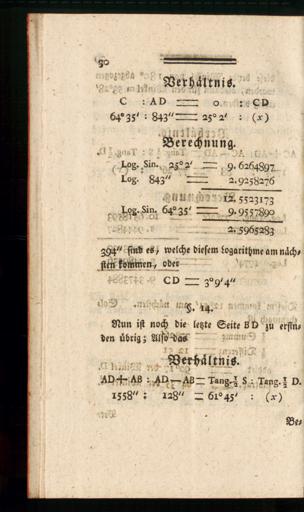 90
Verhältnis.
C : AD = o. : CD
64°35′ : 843″ = 25°2′ : (x)
Berechnung.
Log. Sin. 25°2′ = 9.6264897
Log. 843″ = 2.9258276
12.5523173
Log. Sin. 64°35′ = 9.9557890
2.5965283
394″ sind es, welche diesem Logarithme am näch-
sten kommen, oder
CD = 3°9′4″
§. 14.
Nun ist noch die lezte Seite BD zu erfin-
den übrig; Also das
Verhältnis.
AD+AB : AD—AB = Tang.½ S : Tang.½ D.
1558″ : 128″ = 61°45′ : (x)
Be-